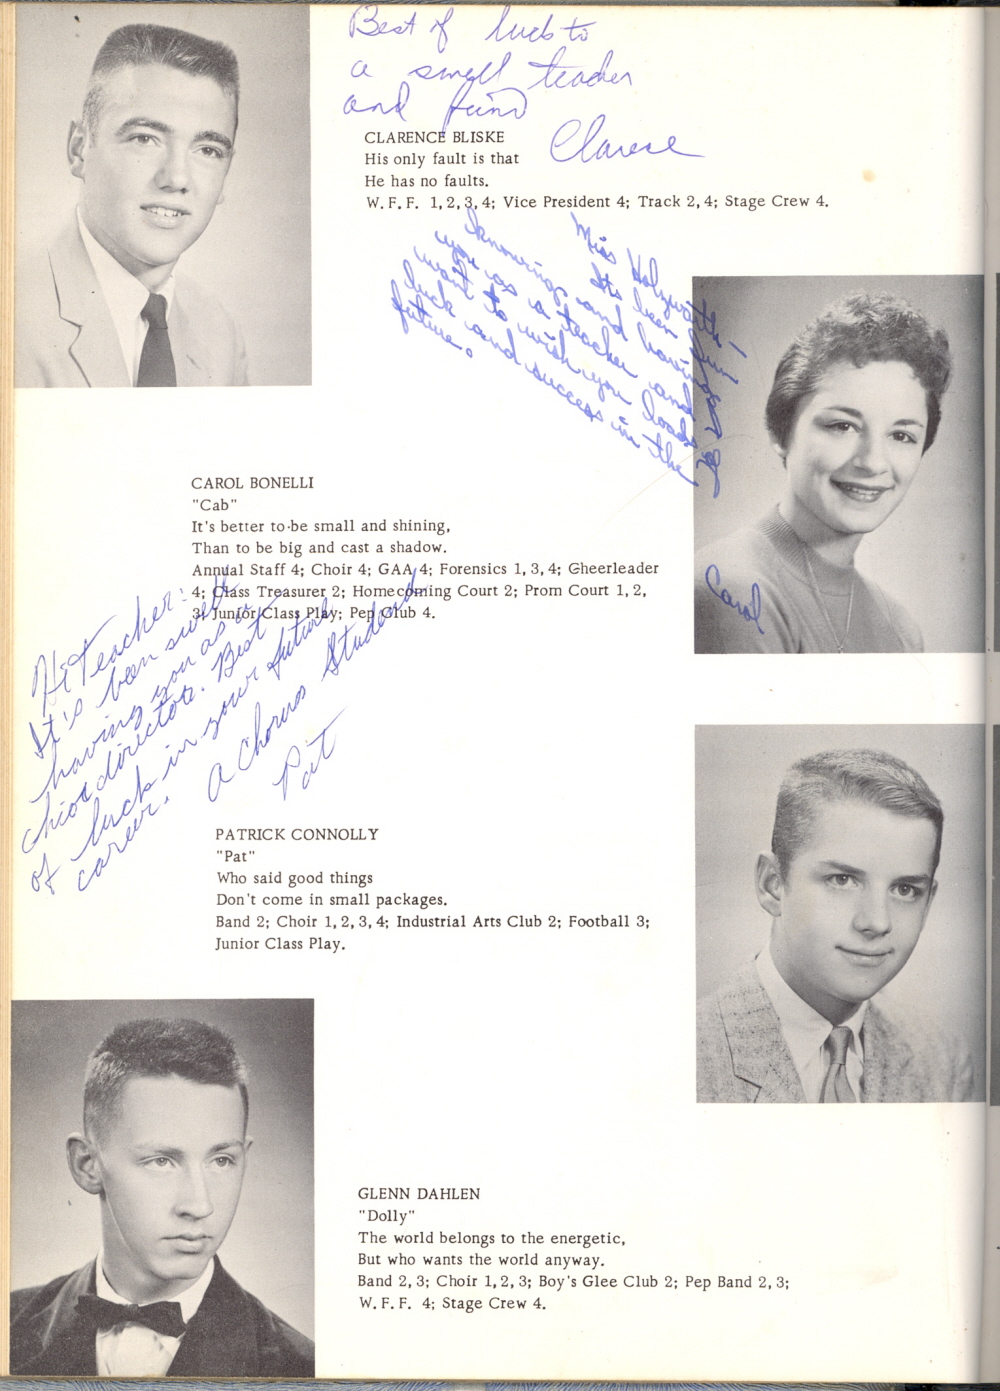 Best of luck to
a swell teacher
and friend
Clarence
CLARENCE BLISKE
His only fault is that
He has no faults.
W. F. F. 1, 2, 3, 4; Vice President 4; Track 2, 4; Stage Crew 4.
Miss
Its been fun
knowing and having
you as a teacher and
want to wish you loads
luck and success in the
future.
Carol
CAROL BONELLI
"Cab"
It's better to be small and shining,
Than to be big and cast a shadow.
Annual Staff 4; Choir 4; GAA 4; Forensics 1, 3, 4; Cheerleader
4; Class Treasurer 2; Homecoming Court 2; Prom Court 1, 2,
3; Junior Class Play; Pep Club 4.
Hi Teacher:
It's been swell
having you as a
chior director. Best
of luck in your future
career.
A Chorus Student
Pat
PATRICK CONNOLLY
"Pat"
Who said good things
Don't come in small packages.
Band 2; Choir 1, 2, 3, 4; Industrial Arts Club 2; Football 3;
Junior Class Play.
GLENN DAHLEN
"Dolly"
The world belongs to the energetic,
But who wants the world anyway.
Band 2, 3; Choir 1, 2, 3; Boy's Glee Club 2; Pep Band 2, 3;
W. F. F. 4; Stage Crew 4.